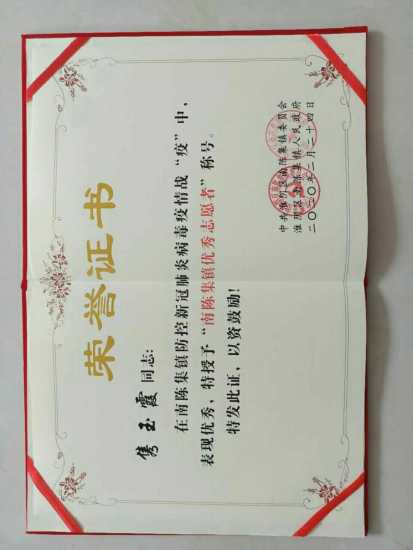 荣誉证书
隽玉霞 同志:
在南陈集镇防控新冠肺炎病毒疫情战“疫”中,
表现优秀,特授予“南陈集镇优秀志愿者”称号。
特发此证,以资鼓励!
中共淮阴区南陈集镇委员会
淮阴区南陈集镇人民政府
二〇二〇年二月二十四日